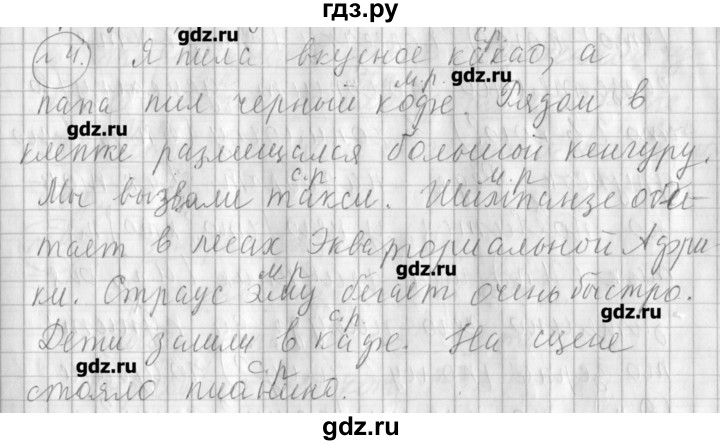 гдз.ру
gdz.ru
с.р.
№ 4. Я пила вкусное какао, а
gdz.ru
м.р.
папа пил черный кофе. Рядом в
gdz.ru
клетке размещался большой кенгуру.
с.р. м.р.
Мы вызвали такси. Шимпанзе оби-
тает в лесах Экваториальной Афри
м.р. gdz.ru
ки. Страус эму бегает очень быстро.
с.р. gdz.ru
Дети зашли в кафе. На сцене
gdz.ru с.р.
стояло пианино.
gdz.ru